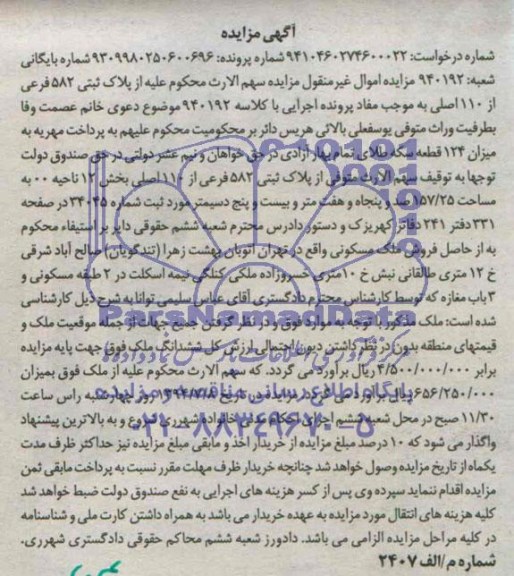 آگهی مزایده
شماره درخواست: ۹۴۱۰۴۶۰۲۷۴۶۰۰۰۲۲ شماره پرونده: ۹۳۰۹۹۸۰۲۵۰۶۰۰۶۹۶ شماره بایگانی
شعبه: ۹۴۰۱۹۲ مزایده اموال غیرمنقول مزایده سهم الارث محکوم علیه از پلاک ثبتی ۵۸۲ فرعی
از ۱۱۰ اصلی به موجب مفاد پرونده اجرایی با کلاسه ۹۴۰۱۹۲ موضوع دعوی خانم عصمت وفا
بطرفیت وراث متوفی یوسفعلی بالائی هریس دائر بر محکومیت محکوم علیهم به پرداخت مهریه به
میزان ۱۲۴ قطعه سکه طلای تمام بهار آزادی در حق خواهان و نیم عشر دولتی در حق صندوق دولت
توجها به توقیف سهم الارث متوفی از پلاک ثبتی ۵۸۲ فرعی از ۱۱۰ اصلی بخش ۱۲ ناحیه ۰۰ به
مساحت ۱۵۷/۲۵ صد و پنجاه و هفت متر و بیست و پنج دسیمتر مورد ثبت شماره ۳۴۰۴۵ در صفحه
۳۳۱ دفتر ۲۴۱ دفاتر کهریزک و دستور دادرس محترم شعبه ششم حقوقی دایر بر استیفاء محکوم
به از حاصل فروش ملک مسکونی واقع در تهران اتوبان بهشت زهرا (تندگویان) صالح آباد شرقی
خ ۱۲ متری طالقانی نبش خ ۱۰ متری خسروزاده ملکی کلنگی نیمه اسکلت در ۲ طبقه مسکونی و
۳ باب مغازه که توسط کارشناس محترم دادگستری آقای عباس سلیمی توانا به شرح ذیل کارشناسی
شده است: ملک مذکور با توجه به موارد فوق و در نظر گرفتن جمیع جهات از جمله موقعیت ملک و
قیمتهای منطقه بدون در نظر داشتن دیون احتمالی ارزش کل ششدانگ ملک فوق جهت پایه مزایده
برابر ۴/۵۰۰/۰۰۰/۰۰۰ ریال برآورد می گردد. که سهم الارث محکوم علیه از ملک فوق بمیزان
۶۵۶/۲۵۰/۰۰۰ ریال برآورد می گردد در مزایده در تاریخ روز چهارشنبه راس ساعت
۱۱/۳۰ صبح در محل شعبه ششم اجرای احکام مدنی خانواده شهرری شروع و به بالاترین پیشنهاد
واگذار می شود که ۱۰ درصد مبلغ مزایده از خریدار اخذ و مابقی مبلغ مزایده نیز حداکثر ظرف مدت
یکماه از تاریخ مزایده وصول خواهد شد چنانچه خریدار ظرف مهلت مقرر نسبت به پرداخت مابقی ثمن
مزایده اقدام ننماید سپرده وی پس از کسر هزینه های اجرایی به نفع صندوق دولت ضبط خواهد شد
کلیه هزینه های انتقال مورد مزایده به عهده خریدار می باشد به همراه داشتن کارت ملی و شناسنامه
در کلیه مراحل مزایده الزامی می باشد. دادورز شعبه ششم محاکم حقوقی دادگستری شهرری.
شماره م/الف ۲۴۰۷
ParsNamadData
پایگاه اطلاع رسانی مناقصه و مزایده
۰۲۱-۸۸۳۴۹۶۷۰-۵